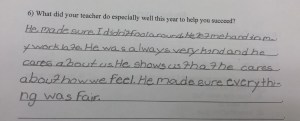 6) What did your teacher do especially well this year to help you succeed?
He made sure I didn't fool around. He
y work
He was always very hard and he
cares about us. He shows us that he cares
about how we feel. He made sure everythi
ng was fair.